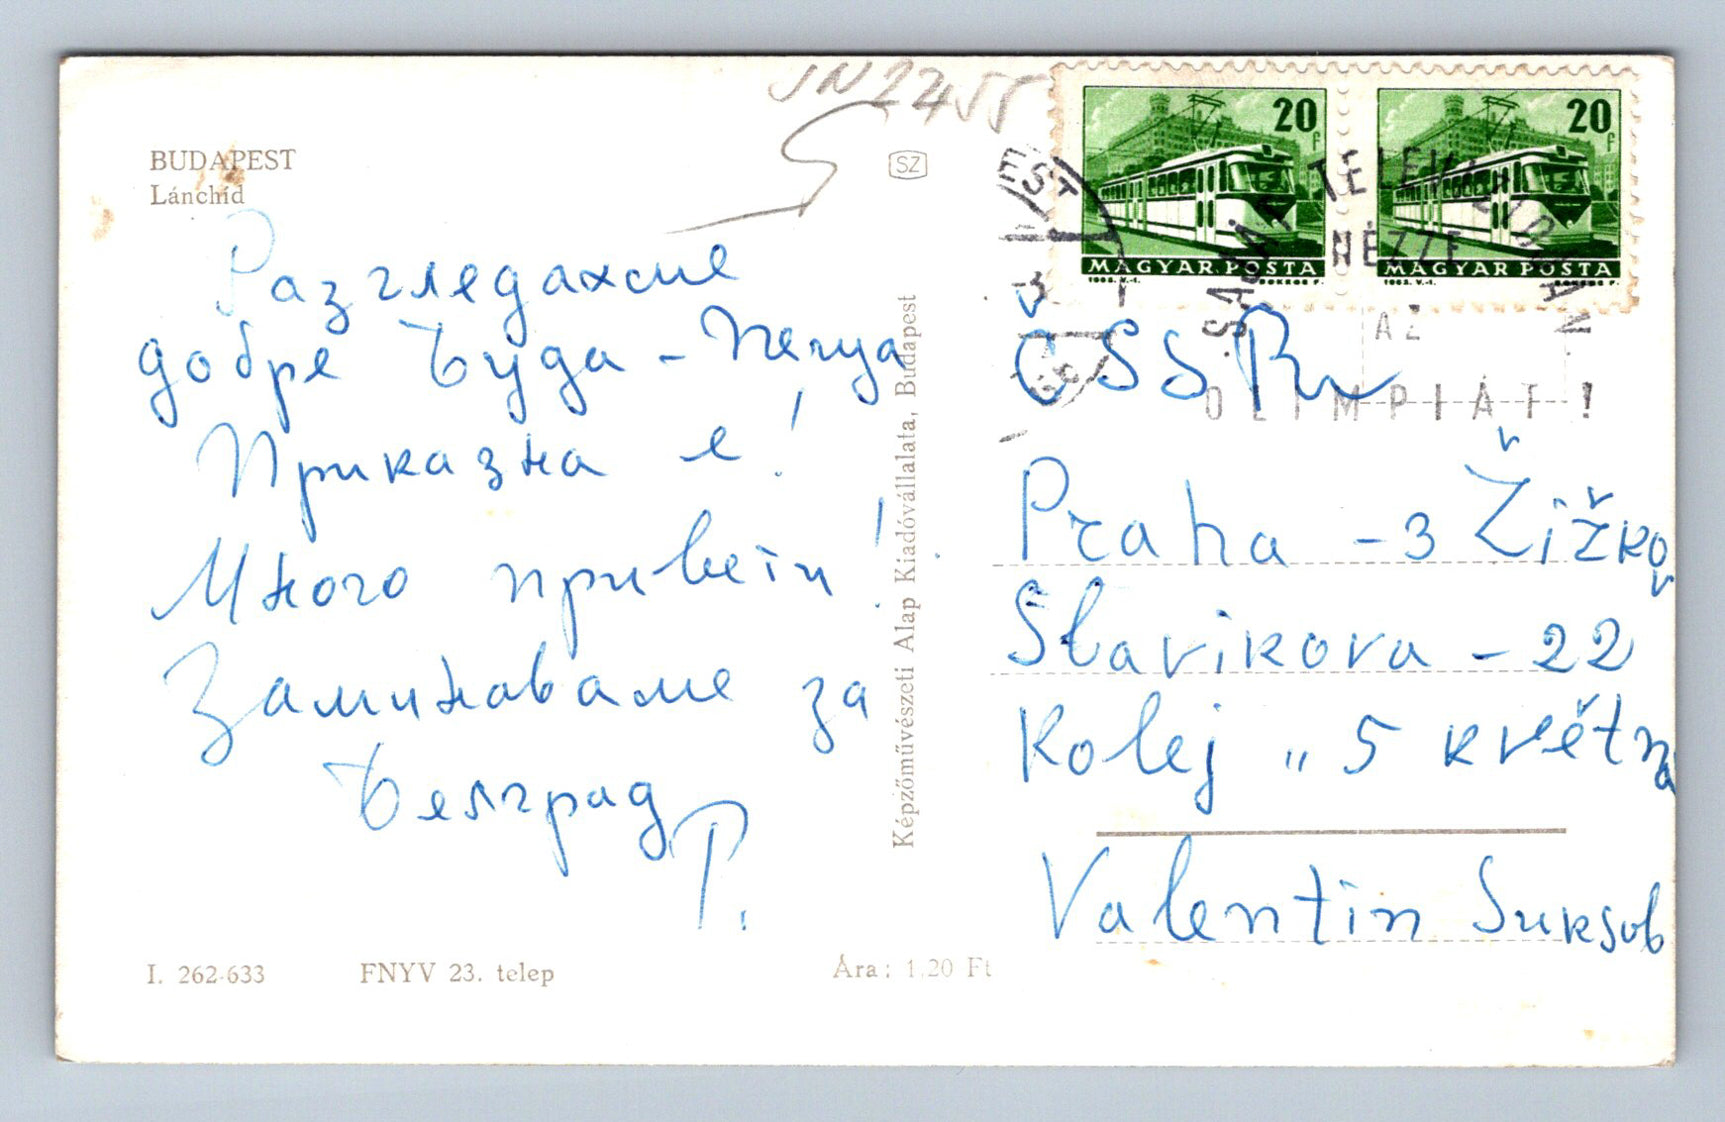 JN2455
BUDAPEST
Lánchíd
SZ
Разгледахме
добре Буда - Пеща
Приказна е!
Много привети!
Заминаваме за
Белград
Р.
Képzőművészeti Alap Kiadóvállalata, Budapest
I. 262-633 FNYV 23. telep Ára: 1.20 Ft
20 f
MAGYAR POSTA
20 f
MAGYAR POSTA
SAJÁT TELEVIZIÓJÁN
NÉZZE
AZ
OLIMPIÁT!
ČSSR
Praha - 3 Žižkov
Slavikova - 22
Kolej „5 května
Valentin